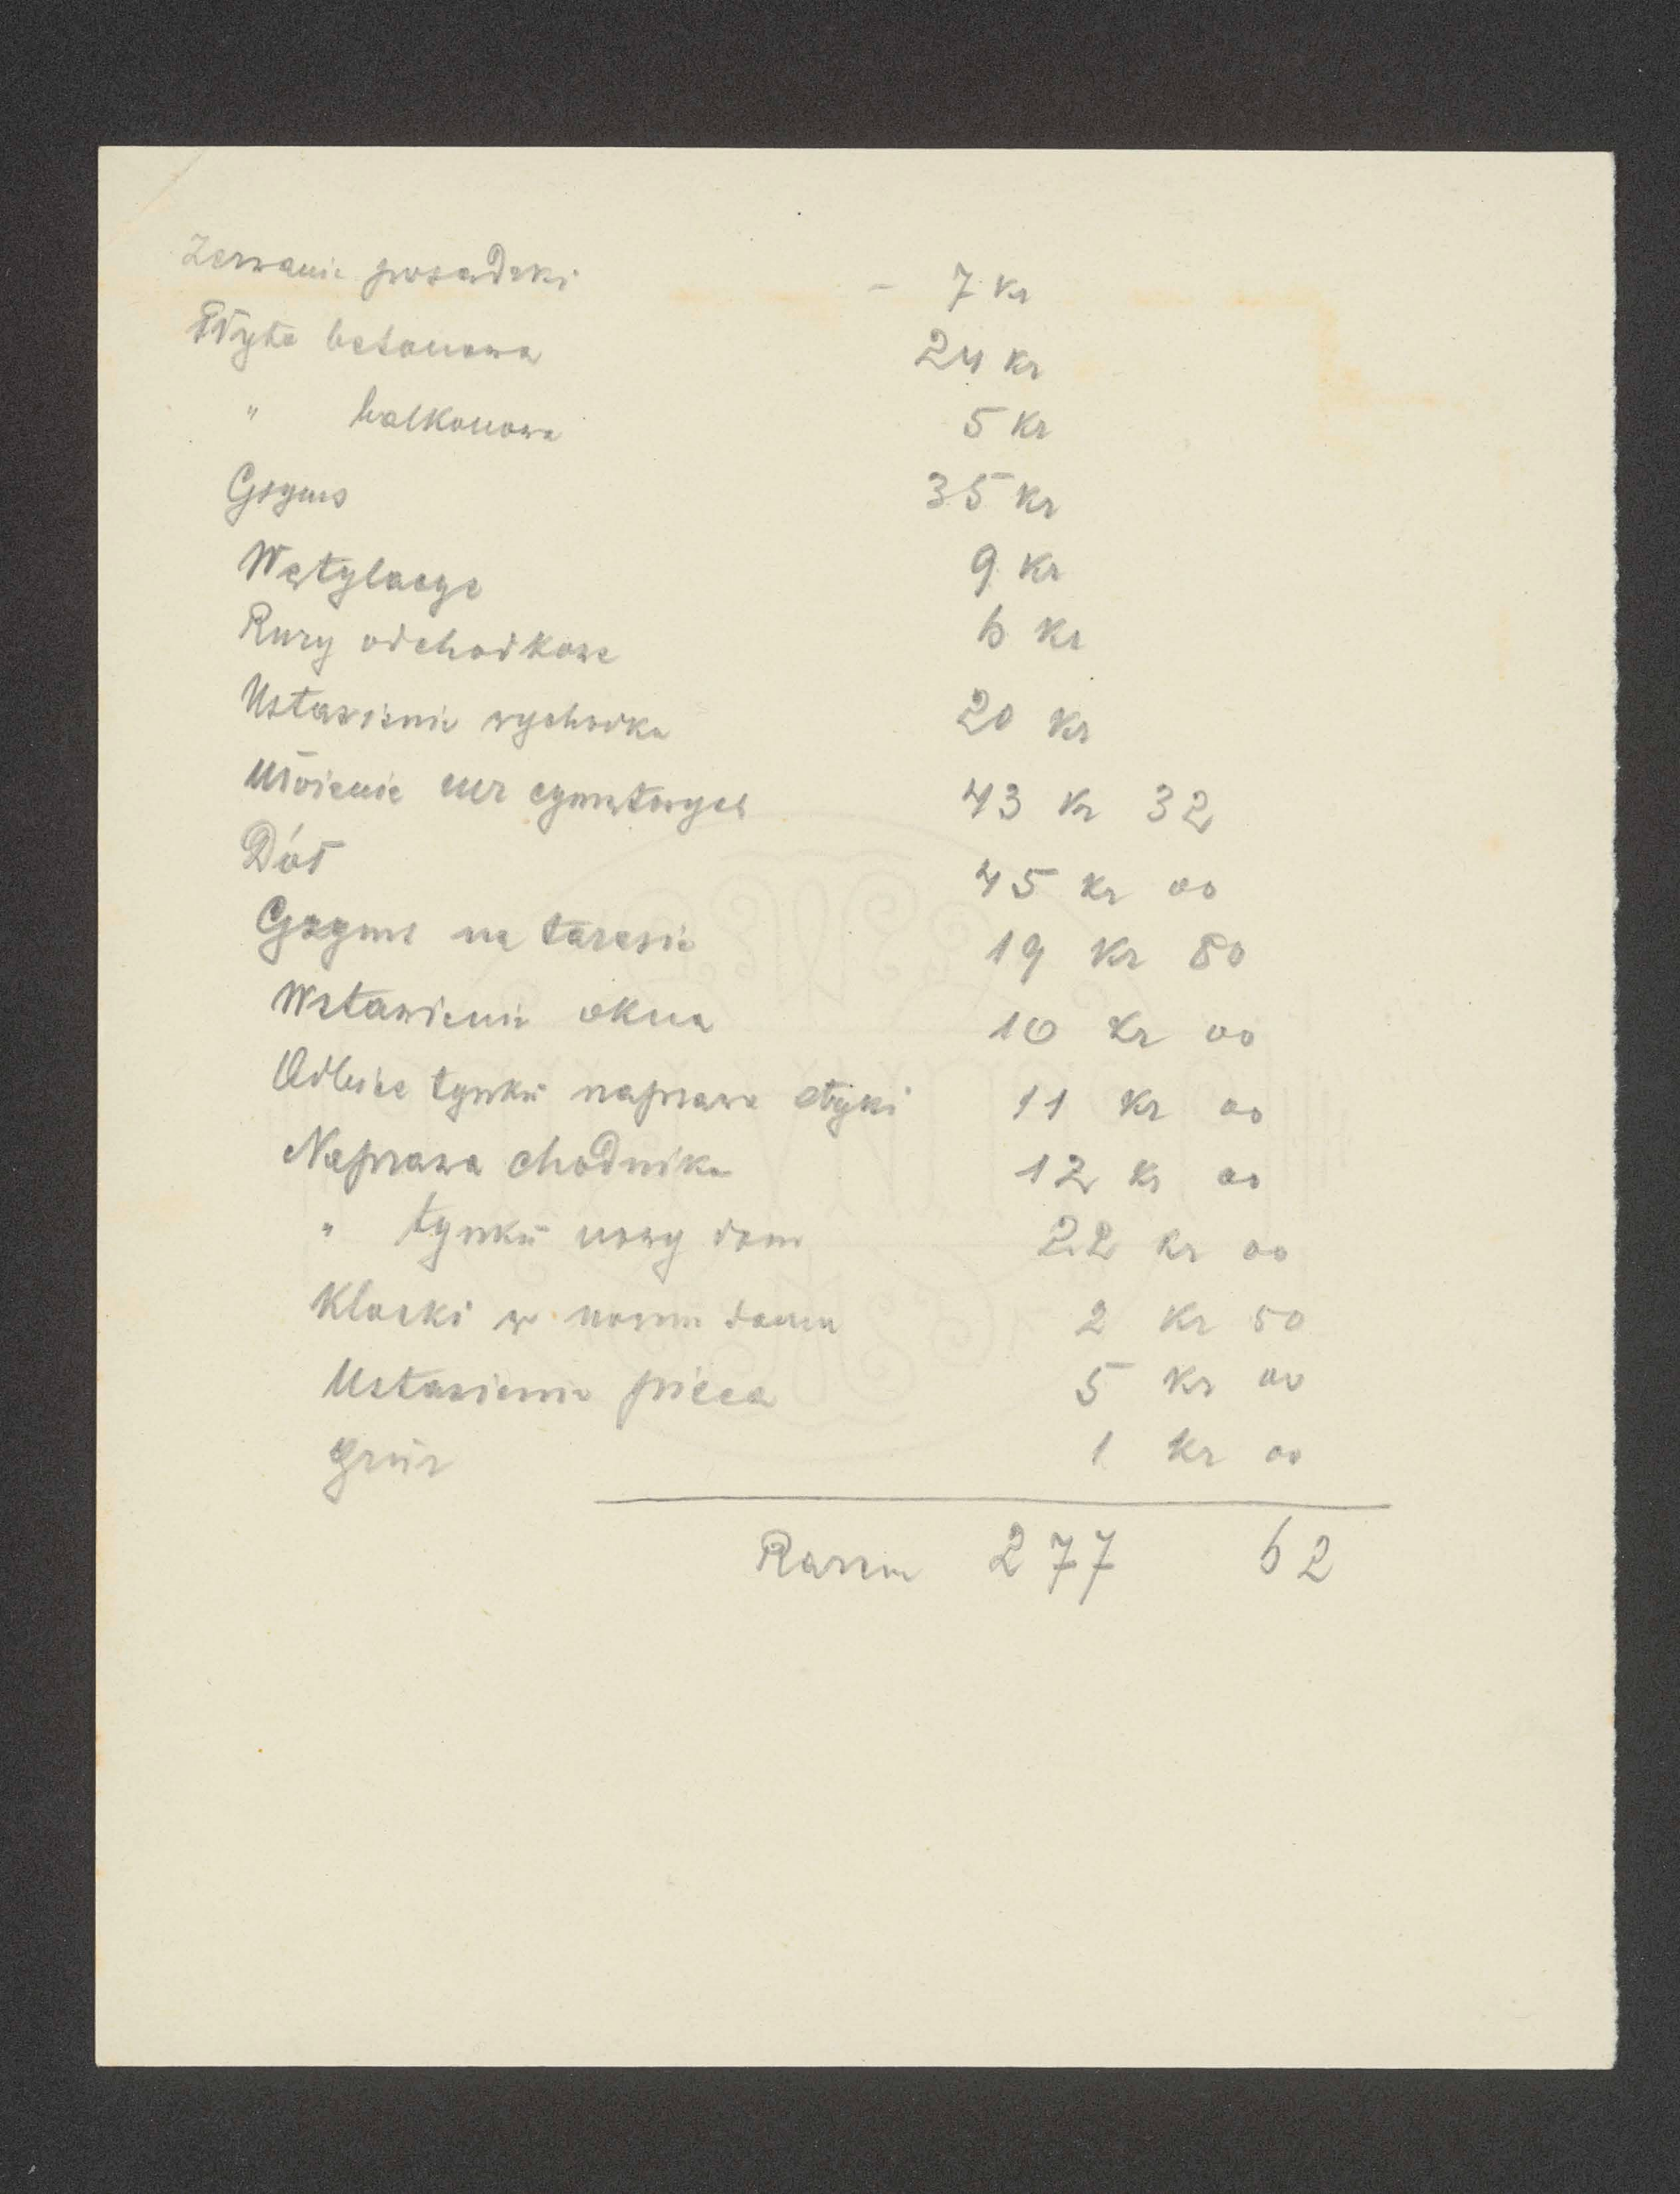 Zerwanie posadzki - 7 kr
Płyta betonowa 24 kr
" balkonowa 5 kr
Gzyms 35 kr
Wetylacye 9 kr
Rury odchodkowe 6 kr
Ustawienie wychodka 20 kr
43 kr 32
Dół 45 kr 00
Gzyms na tarasie 19 kr 80
Wstawienie okna 10 kr 00
Odbicie tynkū naprawa atyki 11 kr 00
Naprawa chodnika 12 kr 00
" tynkū nowy dom 22 kr 00
Klocki w nowm domu 2 kr 50
Ustawienie pieca 5 kr 00
1 kr 00
Razem 277 62